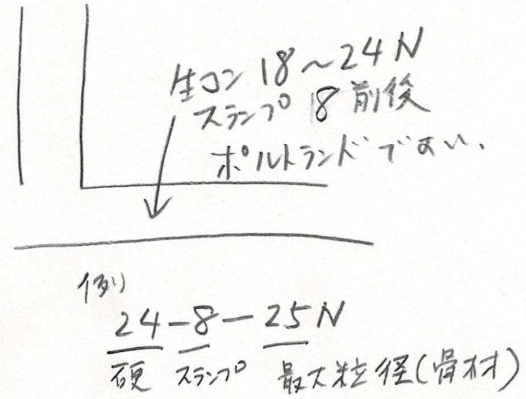 生コン 18～24N
スランプ 8 前後
ポルトランドでよい、
例)
24-8-25N
硬 スランプ 最大粒径(骨材)